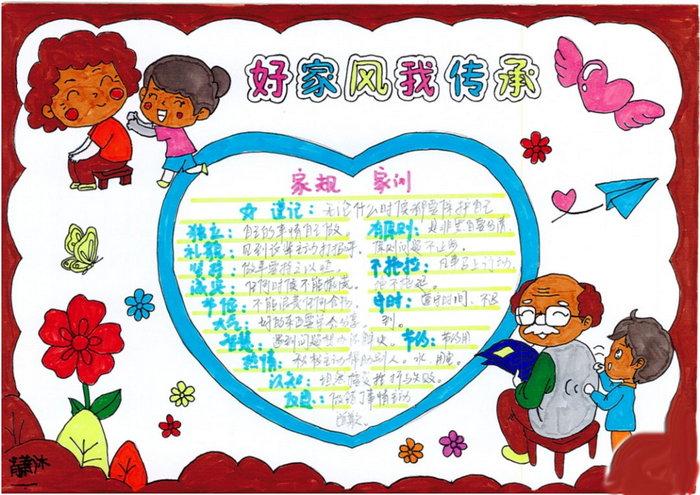 好家风我传承
家规 家训
谨记：无论什么时候都要保护自己
独立：自己的事情自己做。 有原则：是非黑白要分清，
礼貌：见到认识主动打招呼， 原则问题不让步。
坚持：做事要持之以恒。 不拖拉：凡事马上行动，
诚实：任何时候不能撒谎。 绝不拖延。
节俭：不能浪费任何食物。 守时：遵守时间、不迟
大气：好的东西要学会分享。 到。
智慧：遇到问题想办法解决。 节约：节约用
热情：积极主动帮助别人。 水、用电。
认知：坦然接受挫折与失败。
感恩：做力事情主动
道歉。
肖萧沐